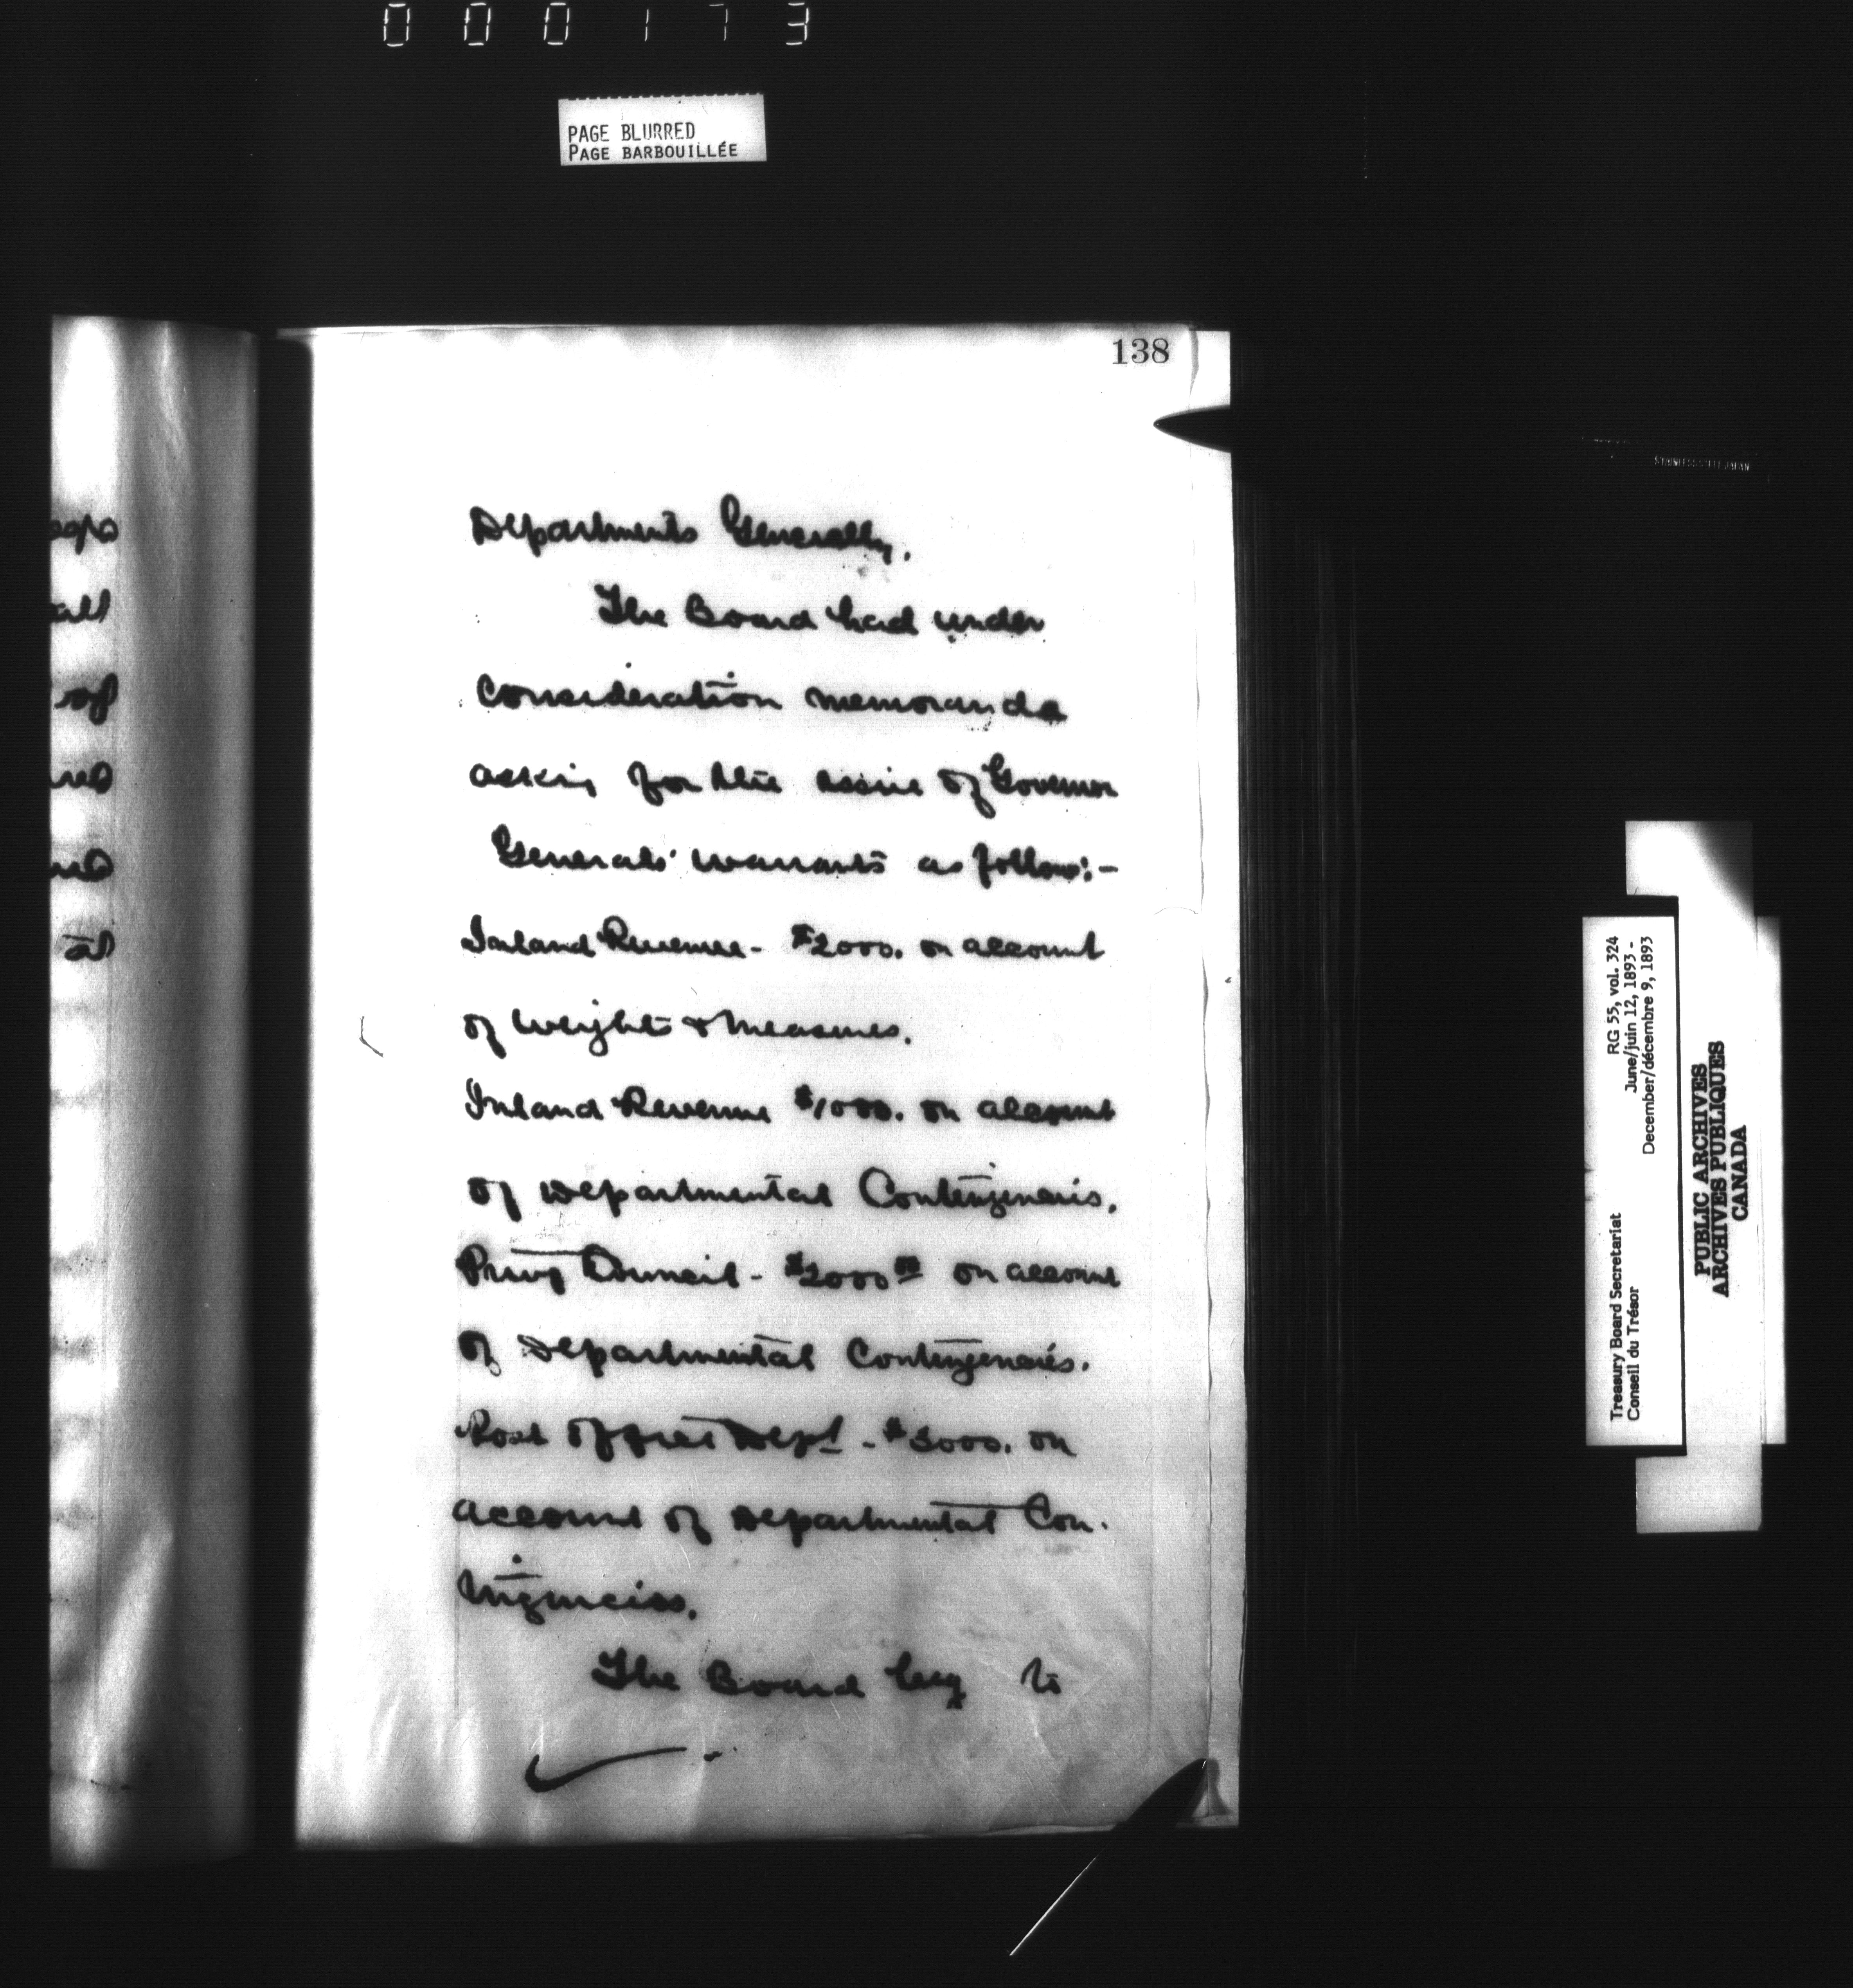 000173
PAGE BLURRED
PAGE BARBOUILLÉE
138
Departments Generally.
The Board had under
consideration memoranda
asking for the issue of Governor
Generals' warrants as follow:-
Inland Revenue - $2000. on account
of Weights & Measures.
Inland Revenue $1000. on account
of Departmental Contingencies.
Privy Council - $2000 00 on account
of Departmental Contingencies.
Post Office Dept - $3000. on
account of Departmental Con-
tingencies.
The Board beg to
all
of
STAINLESS STEEL JAPAN
RG 55, vol. 324
June/juin 12, 1893 -
December/décembre 9, 1893
Treasury Board Secretariat
Conseil du Trésor
PUBLIC ARCHIVES
ARCHIVES PUBLIQUES
CANADA